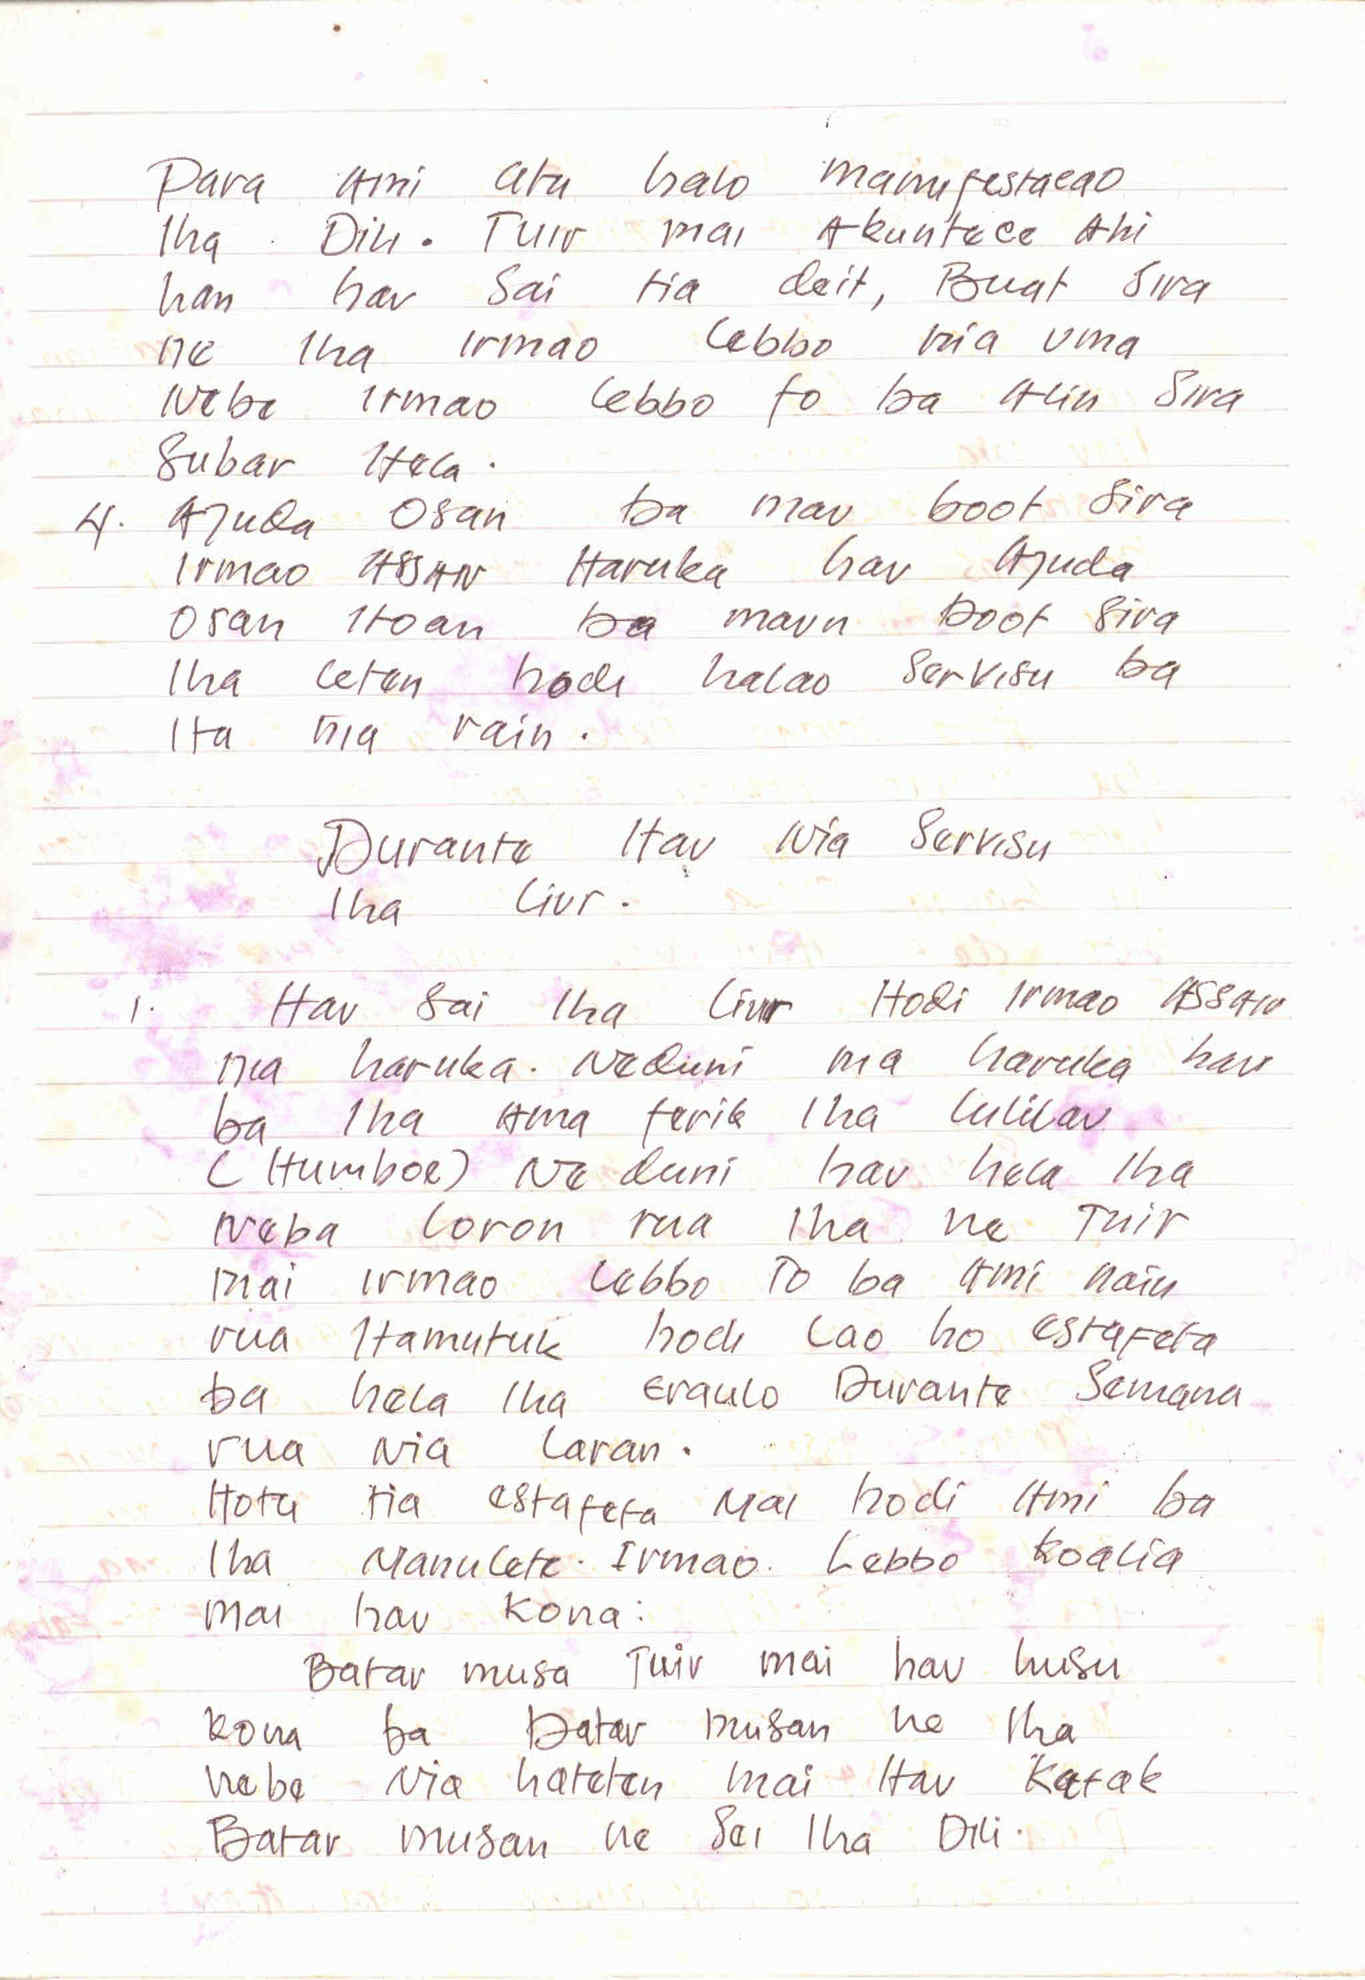 Para Ami atu halo manifestacao
Iha Dili. Tuir mai Akuntece Ahi
han hau Sai tia deit, Buat Sira
ne Iha irmao Lebbo nia uma
Nebe irmao Lebbo fo ba Alin Sira
Subar Hela.
4. Ajuda Osan ba mau boot Sira
Irmao ASSAN Haruka hau Ajuda
Osan Itoan ba maun boot Sira
Iha leten hodi halao Servisu ba
Ita nia rain.
Durante Hau Nia Servisu
Iha Liur.
1. Hau Sai Iha Liur Hodi Irmao ASSAN
nia haruka. Neduni nia haruka hau
ba Iha Ama ferik Iha Lulilau
(Humboe) Ne duni hau hela Iha
Neba Loron rua Iha ne Tuir
mai irmao Lebbo To ba Ami nain
rua Hamutuk hodi Lao ho estafeta
ba hela Iha Eraulo Durante Semana
rua Nia Laran.
Hotu tia estafeta Mai hodi Ami ba
Iha Manulete. Irmao Lebbo Koalia
mai hau Kona:
Batar musa Tuir mai hau husu
Kona ba Batar musan ne Iha
nebe Nia hateten mai Hau Katak
Batar musan ne Sei Iha Dili.